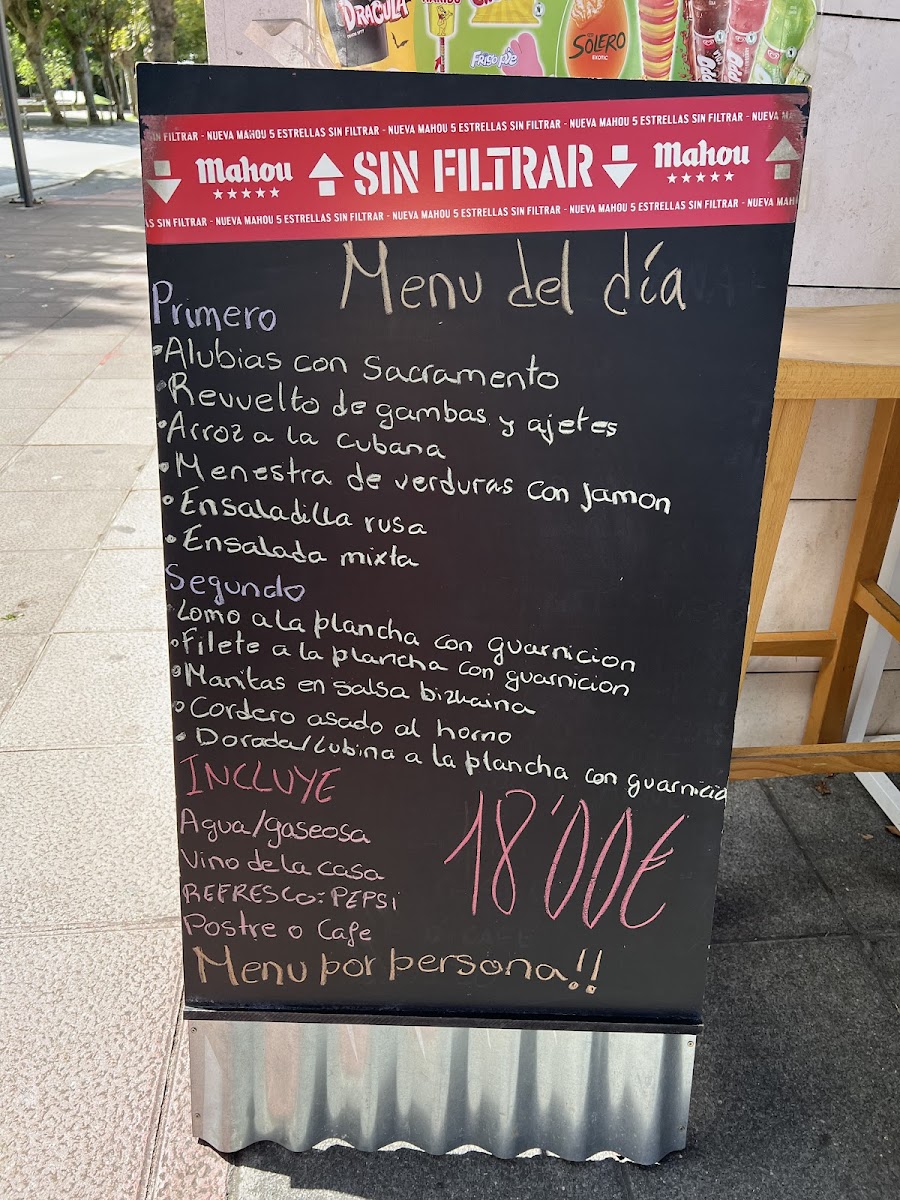 DRACULA
FRIGO PIE
SOLERO
EXOTIC
SIN FILTRAR - NUEVA MAHOU 5 ESTRELLAS SIN FILTRAR - NUEVA MAHOU 5 ESTRELLAS SIN FILTRAR - NUEVA MAHOU 5 ESTRELLAS SIN FILTRAR - NUEVA
Mahou SIN FILTRAR Mahou
AS SIN FILTRAR - NUEVA MAHOU 5 ESTRELLAS SIN FILTRAR - NUEVA MAHOU 5 ESTRELLAS SIN FILTRAR - NUEVA MAHOU 5 ESTRELLAS SIN FILTRAR - NUEVA MAH
Menu del día
Primero
•Alubias con Sacramento
•Revuelto de gambas y ajetes
•Arroz a la cubana
•Menestra de verduras con jamon
•Ensaladilla rusa
•Ensalada mixta
Segundo
•Lomo a la plancha con guarnicion
•Filete a la plancha con guarnicion
•Manitas en salsa bizkaina
•Cordero asado al horno
•Dorada/Lubina a la plancha con guarnicio
INCLUYE
Agua/gaseosa
Vino de la casa
REFRESCO: PEPSI
Postre o Cafe
18'00€
Menu por persona!!